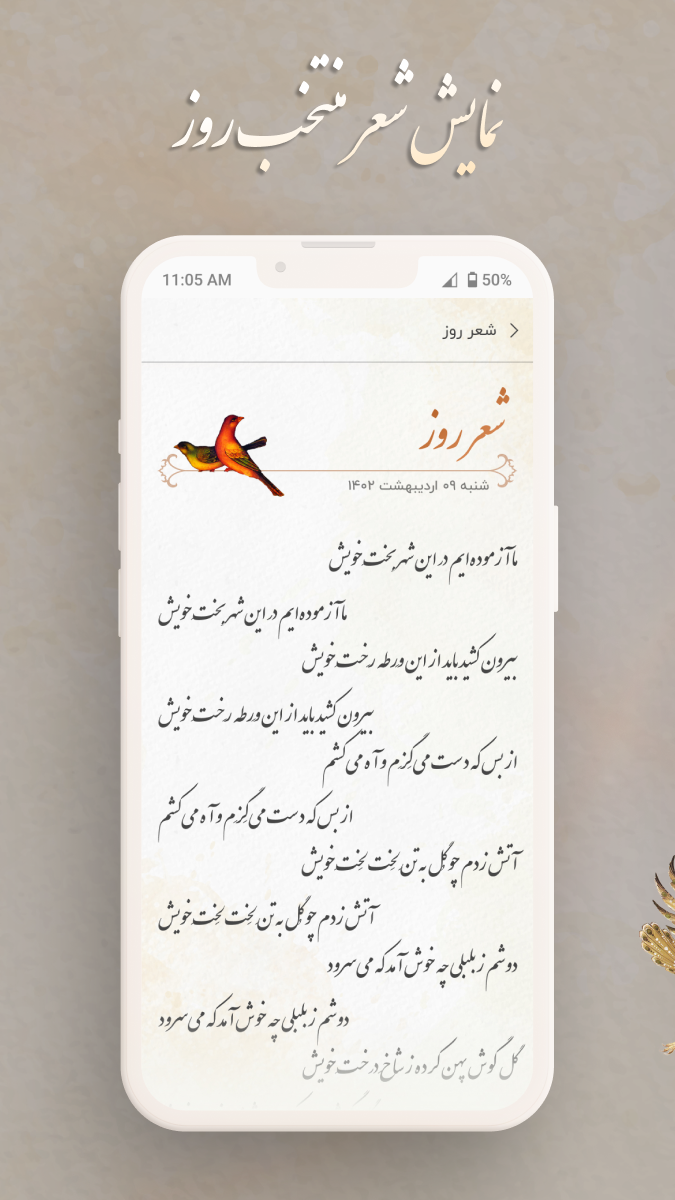 نمایش شعر منتخب روز
11:05 AM 50%
شعر روز
شعر روز
شنبه ۰۹ اردیبهشت ۱۴۰۲
ما آزموده‌ایم در این شهر بخت خویش
ما آزموده‌ایم در این شهر بخت خویش
بیرون کشید باید از این ورطه رخت خویش
بیرون کشید باید از این ورطه رخت خویش
از بس که دست می‌گزم و آه می‌کشم
از بس که دست می‌گزم و آه می‌کشم
آتش زدم چو گل به تن لخت لخت خویش
آتش زدم چو گل به تن لخت لخت خویش
دوشم ز بلبلی چه خوش آمد که می‌سرود
دوشم ز بلبلی چه خوش آمد که می‌سرود
گل گوش پهن کرده ز شاخ درخت خویش